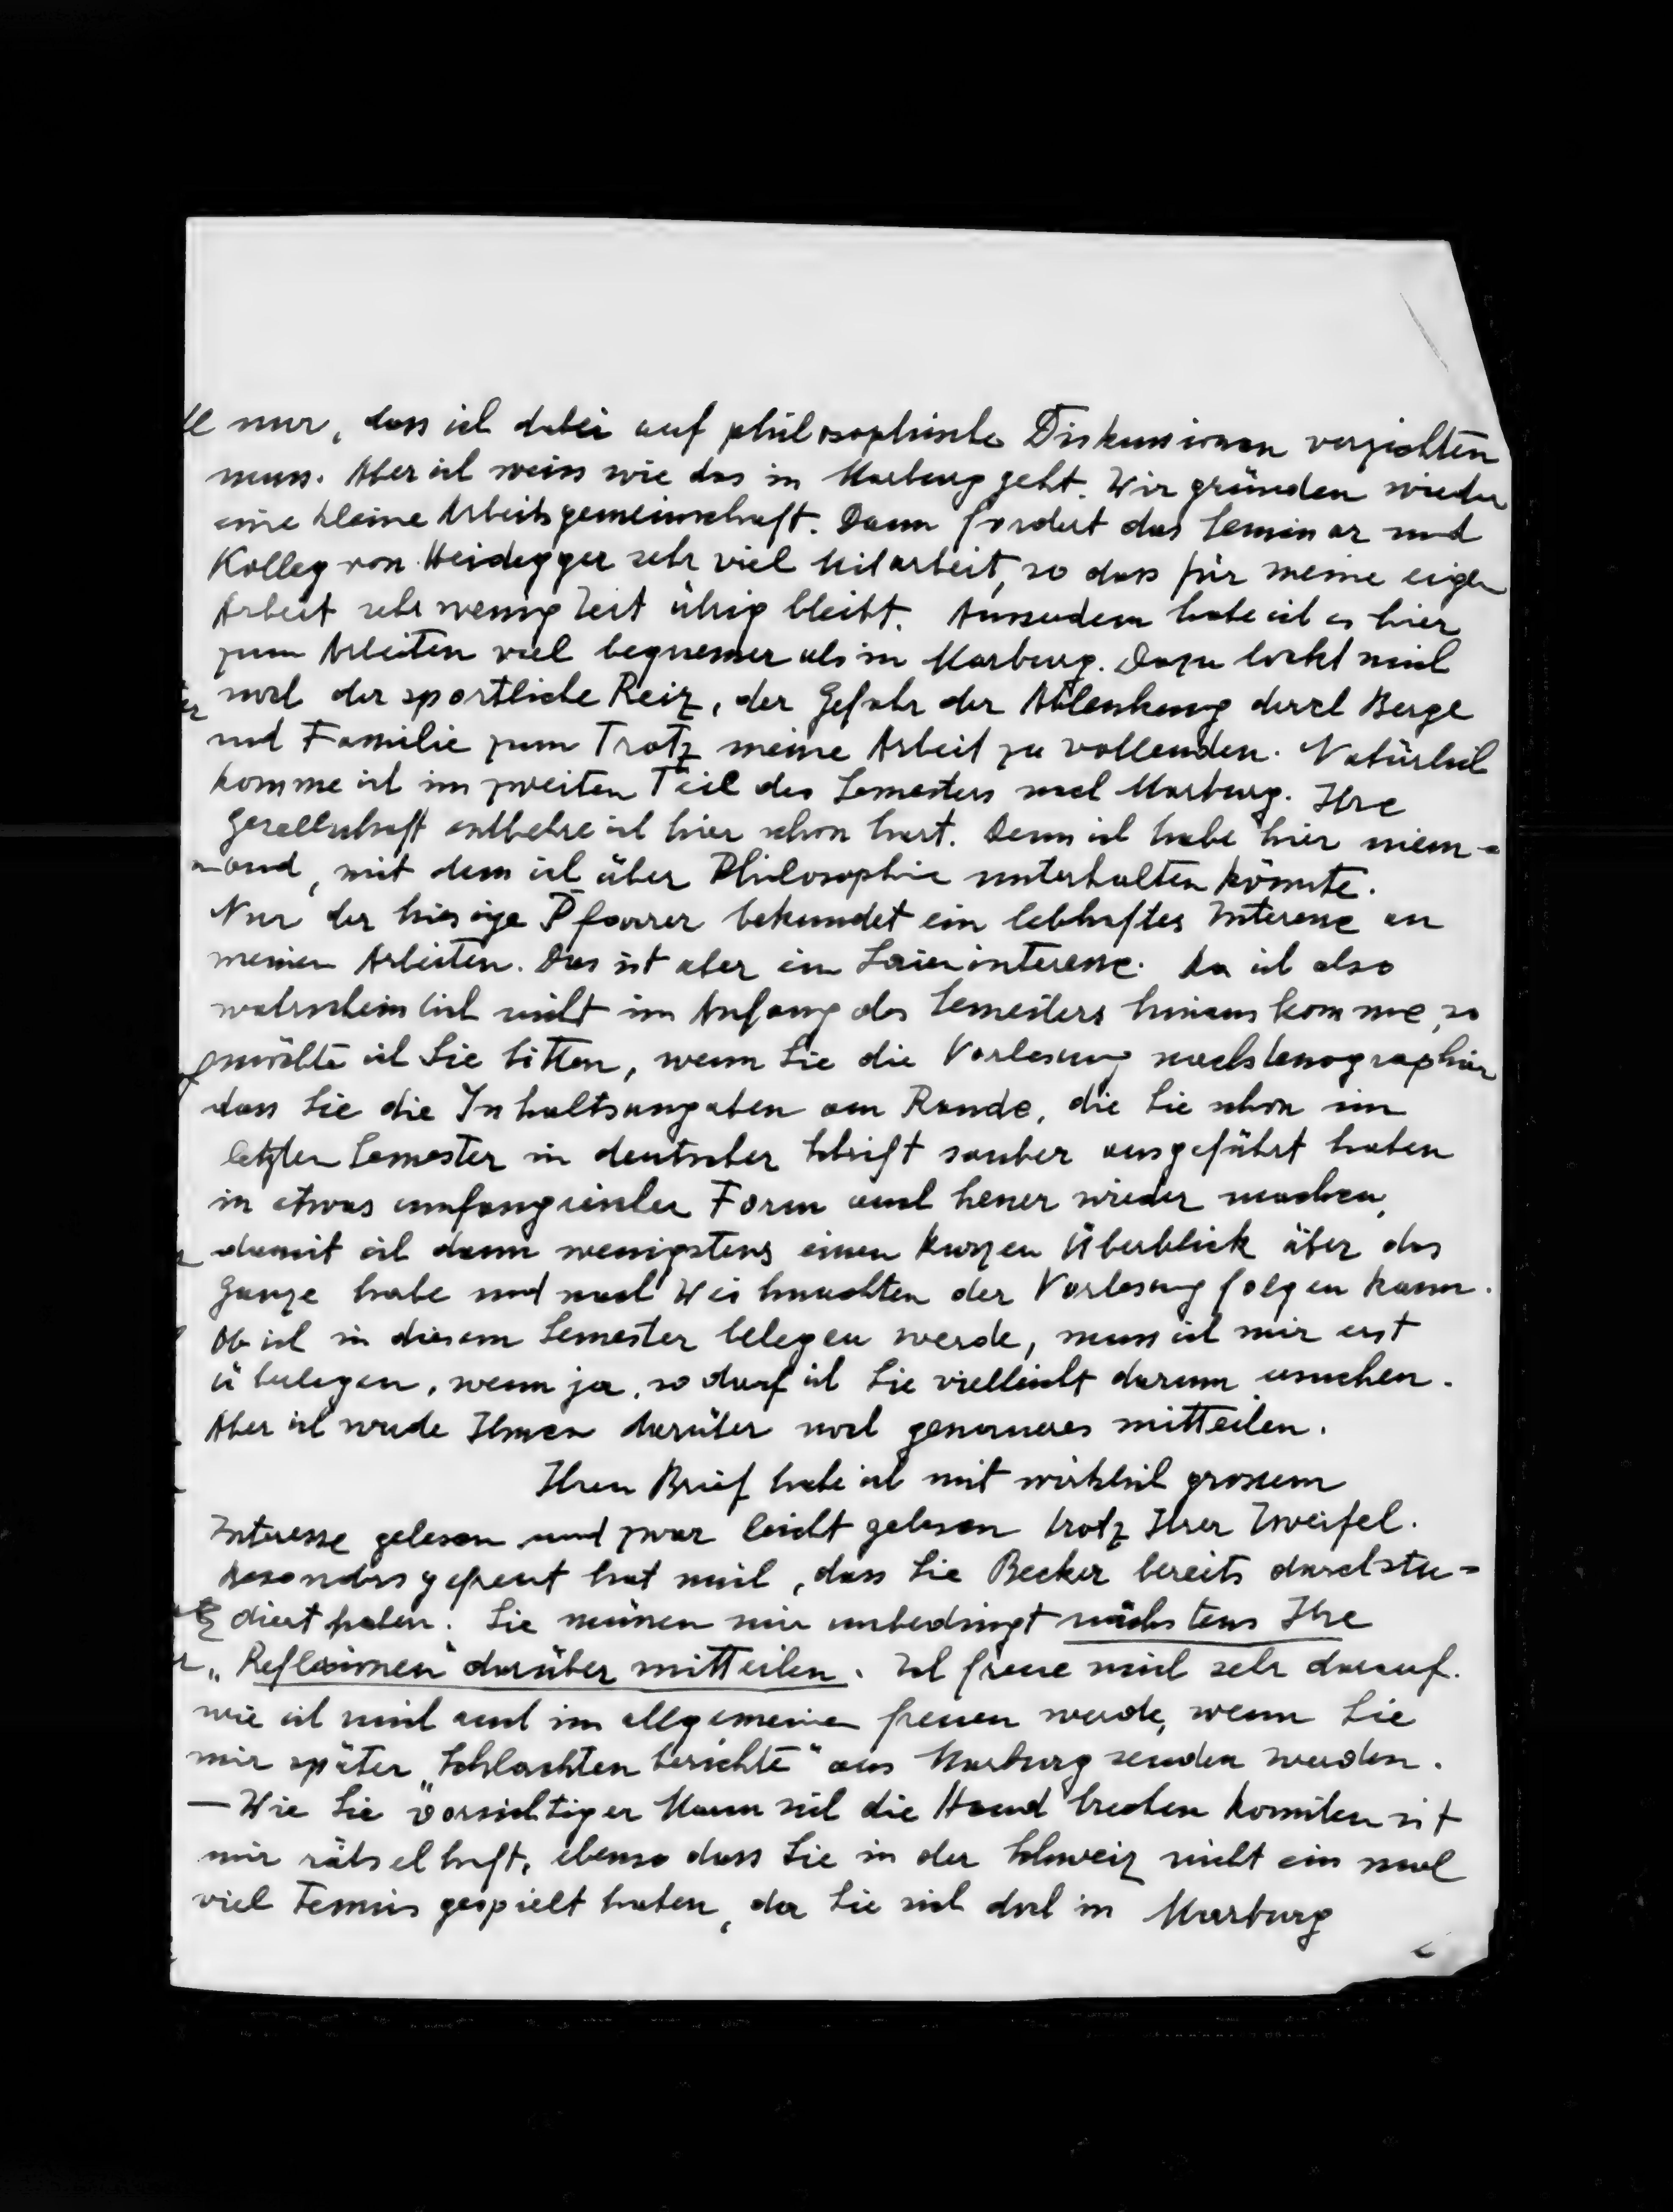 nur, dass ich dabei auf philosophische Diskussionen verzichten
muss. Aber ich weiss wie das in Marburg geht. Wir gründen wieder
eine kleine Arbeitsgemeinschaft. Dann fordert das Seminar und
Kolleg von Heidegger sehr viel Mitarbeit, so dass für meine eigen
Arbeit sehr wenig Zeit übrig bleibt. Ausserdem habe ich es hier
zum Arbeiten viel bequemer als in Marburg. Dazu lockt mich
noch der sportliche Reiz, der Gefahr der Ablenkung durch Berge
und Familie zum Trotz meine Arbeit zu vollenden. Natürlich
komme ich im zweiten Teil des Semesters nach Marburg. Ihre
Gesellschaft entbehre ich hier schon hart. Denn ich habe hier niem-
and, mit dem ich über Philosophie unterhalten könnte.
Nur der hiesige Pfarrer bekundet ein lebhaftes Interesse an
meinen Arbeiten. Das ist aber ein Laieninteresse. Da ich also
wahrscheinlich nicht im Anfang des Semesters hinaus komme, so
möchte ich Sie bitten, wenn Sie die Vorlesung nachstenographier
dass Sie die Inhaltsangaben am Rande, die Sie schon im
letzten Semester in deutscher Schrift sauber ausgeführt haben
in etwas umfangreicher Form auch heuer wieder machen,
damit ich dann wenigstens einen kurzen Überblick über das
Ganze habe und nach Weihnachten der Vorlesung folgen kann.
Ob ich in diesem Semester belegen werde, muss ich mir erst
überlegen, wenn ja, so darf ich Sie vielleicht darum ersuchen.
Aber ich werde Ihnen darüber noch genaueres mitteilen.
Ihren Brief habe ich mit wirklich grossem
Interesse gelesen und zwar leicht gelesen trotz Ihrer Zweifel.
Besonders gefreut hat mich, dass Sie Becker bereits durchstu-
diert haben. Sie müssen mir unbedingt nächstens Ihre
„Reflexionen" darüber mitteilen. Ich freue mich sehr darauf.
wie ich mich auch im allgemeinen freuen werde, wenn Sie
mir später „Schlachtenberichte" aus Marburg senden werden.
— Wie Sie vorsichtiger Mann sich die Hand brechen konnten ist
mir rätselhaft, ebenso dass Sie in der Schweiz nicht ein mal
viel Tennis gespielt haben, da Sie sich doch in Marburg